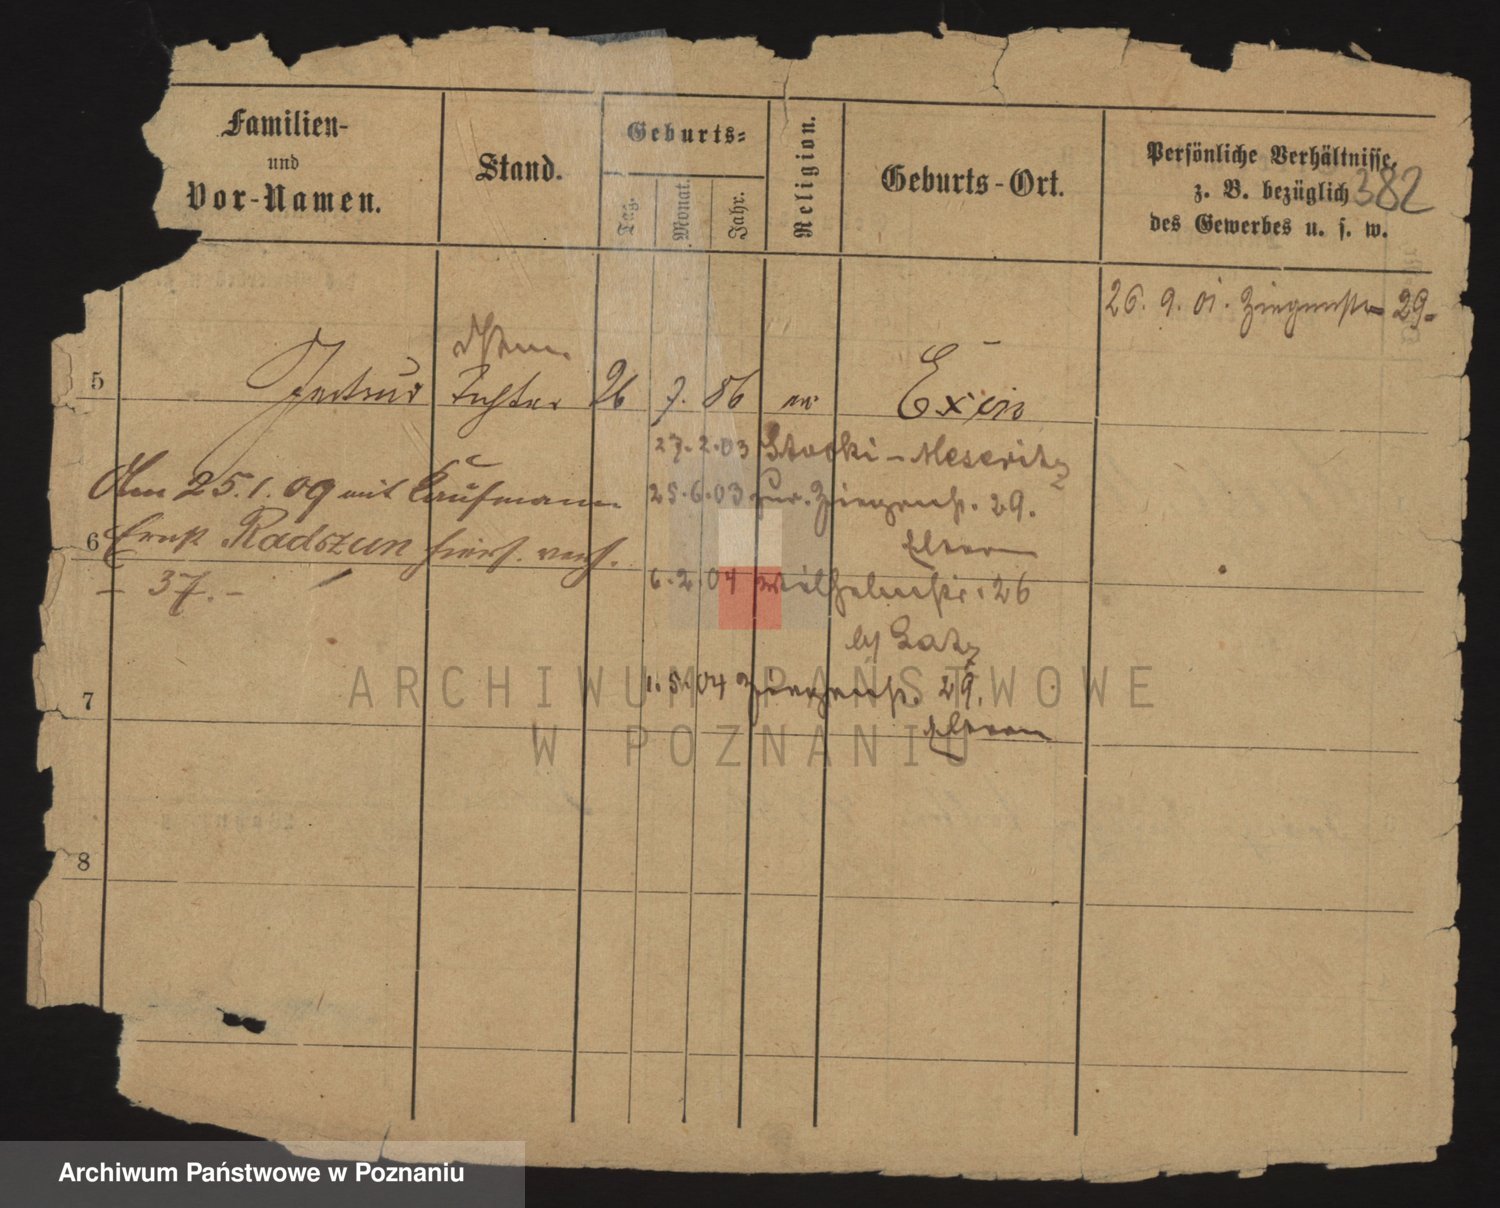 Familien-
und
Vor-Namen.
Stand.
Geburts-
Tag.
Monat.
Jahr.
Religion.
Geburts-Ort.
Persönliche Verhältnisse,
z. B. bezüglich
des Gewerbes u. s. w.
382
26. 9. 01. Ziegenstr 29.
5 Gertrud Tochter 26 7. 86 ev Exin
27.2.03 - Meseritz
25.6.03 zur. Ziegenstr. 29.
Eltern
Am 25.1.09 mit Kaufmann
6 Ernst Radszun hiers. verh.
- 37. -
6.2.04 Wilhelmstr. 26
1.5.04 Ziegenstr. 29.
Eltern
7
8
ARCHIWUM PAŃSTWOWE
W POZNANIU
Archiwum Państwowe w Poznaniu